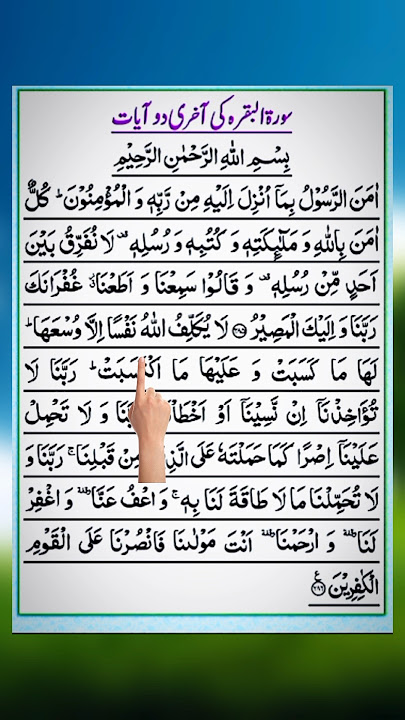 سورۃ البقرہ کی آخری دو آیات
بِسْمِ اللهِ الرَّحْمٰنِ الرَّحِيْمِ
اٰمَنَ الرَّسُوْلُ بِمَاۤ اُنْزِلَ اِلَيْهِ مِنْ رَّبِّهٖ وَ الْمُؤْمِنُوْنَؕ كُلٌّ
اٰمَنَ بِاللهِ وَ مَلٰٓىِٕكَتِهٖ وَ كُتُبِهٖ وَ رُسُلِهٖ۫ لَا نُفَرِّقُ بَيْنَ
اَحَدٍ مِّنْ رُّسُلِهٖ۫ وَ قَالُوْا سَمِعْنَا وَ اَطَعْنَا٘ غُفْرَانَكَ
رَبَّنَا وَ اِلَيْكَ الْمَصِيْرُ ﴿۲۸۵﴾ لَا يُكَلِّفُ اللهُ نَفْسًا اِلَّا وُسْعَهَاؕ
لَهَا مَا كَسَبَتْ وَ عَلَيْهَا مَا اكْتَسَبَتْؕ رَبَّنَا لَا
تُؤَاخِذْنَاۤ اِنْ نَّسِيْنَاۤ اَوْ اَخْطَاْ وَ لَا تَحْمِلْ
عَلَيْنَاۤ اِصْرًا كَمَا حَمَلْتَهٗ عَلَى الَّذِ مِنْ قَبْلِنَاۚ رَبَّنَا وَ
لَا تُحَمِّلْنَا مَا لَا طَاقَةَ لَنَا بِهٖۚ وَ اعْفُ عَنَّاٙ وَ اغْفِرْ
لَنَاٙ وَ ارْحَمْنَاٙ اَنْتَ مَوْلٰىنَا فَانْصُرْنَا عَلَى الْقَوْمِ
الْكٰفِرِيْنَ ﴿۲۸۶﴾ ع